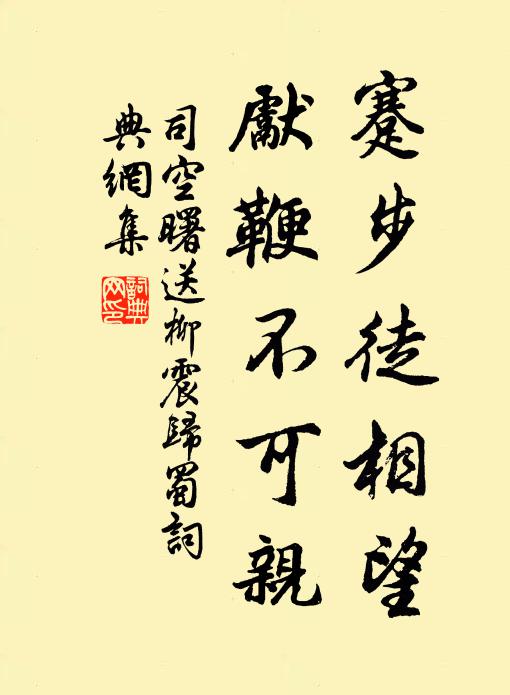 蹇步徒相望
獻鞭不可親
司空曙送柳震歸蜀詞
典網集
詞典
网印